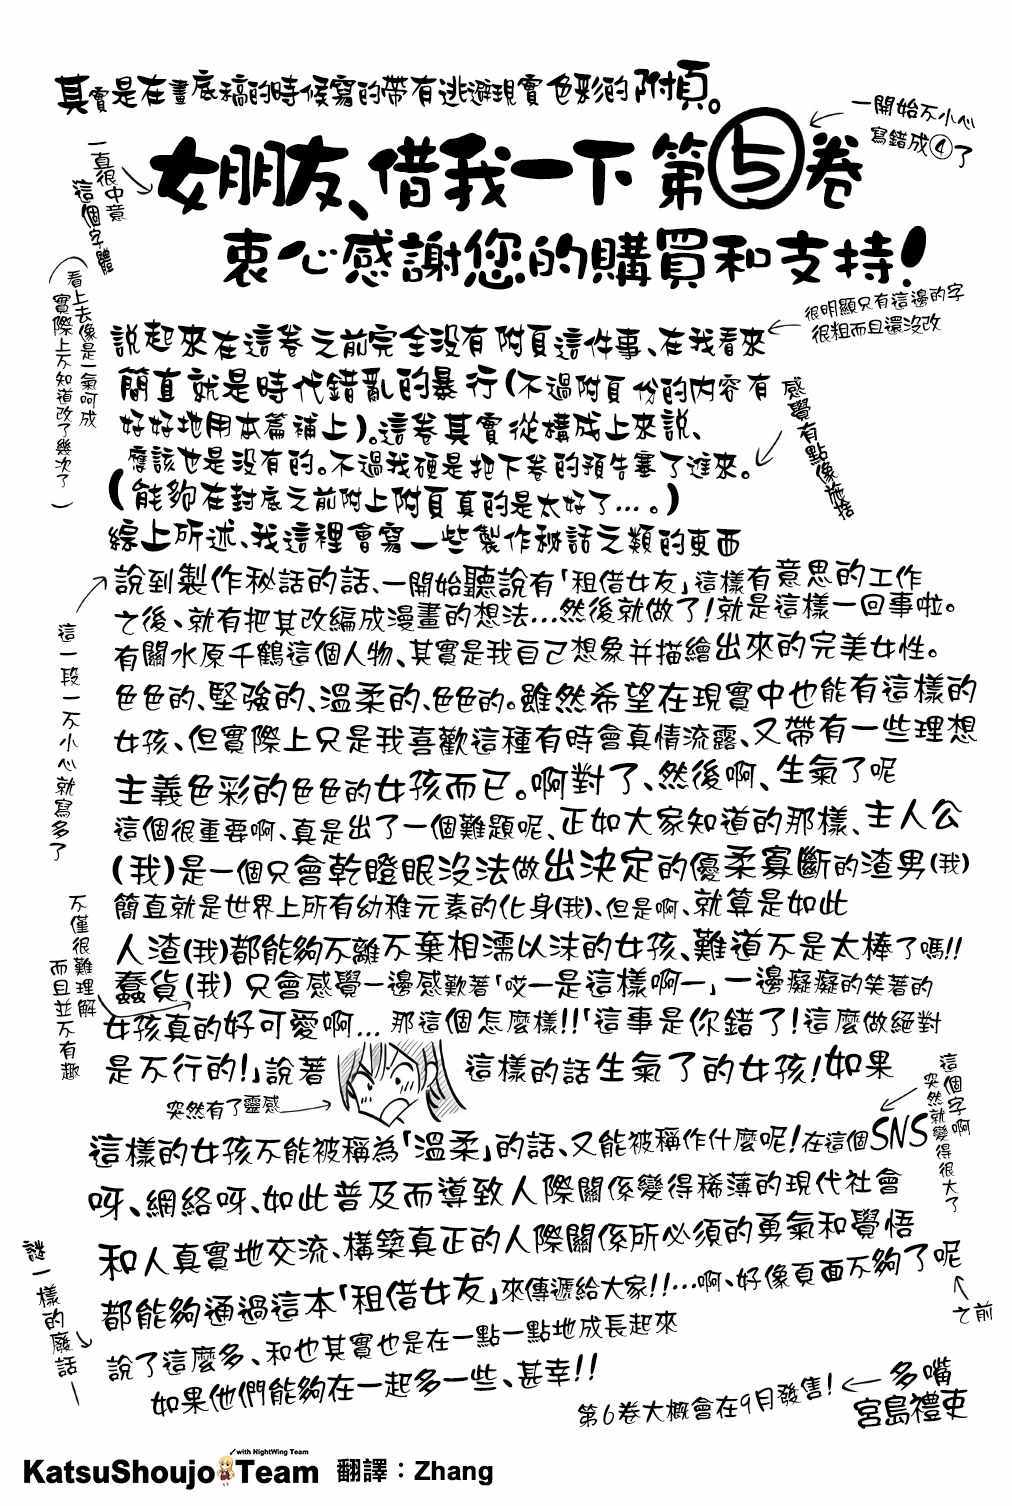 其實是在畫底稿的時候寫的帶有逃避現實色彩的附頁。
一開始不小心
寫錯成④了
一直很中意
這個字體
女朋友、借我一下 第⑤卷
衷心感謝您的購買和支持!
(看上去像是一氣呵成
實際上不知道改了幾次了)
很明顯只有這邊的字
很粗而且還沒改
說起來在這卷之前完全沒有附頁這件事、在我看來
簡直就是時代錯亂的暴行(不過附頁份的內容有
好好地用本篇補上)。這卷其實從構成上來說、
應該也是沒有的。不過我硬是把下卷的預告塞了進來。
感覺有點像施捨
(能夠在封底之前附上附頁真的是太好了…。)
綜上所述、我這裡會寫一些製作秘話之類的東西
說到製作秘話的話、一開始聽說有「租借女友」這樣有意思的工作
之後、就有把其改編成漫畫的想法…然後就做了!就是這樣一回事啦。
有關水原千鶴這個人物、其實是我自己想象并描繪出來的完美女性。
這一段一不小心就寫多了
色色的、堅強的、溫柔的、色色的。雖然希望在現實中也能有這樣的
女孩、但實際上只是我喜歡這種有時會真情流露、又帶有一些理想
主義色彩的色色的女孩而已。啊對了、然後啊、生氣了呢
這個很重要啊、真是出了一個難題呢、正如大家知道的那樣、主人公
(我)是一個只會乾瞪眼沒法做出決定的優柔寡斷的渣男(我)
簡直就是世界上所有幼稚元素的化身(我)、但是啊、就算是如此
人渣(我)都能夠不離不棄相濡以沫的女孩、難道不是太棒了嗎!!
不僅很難理解
而且並不有趣
蠢貨(我) 只會感覺一邊感歎著「哎一是這樣啊一」一邊癡癡的笑著的
女孩真的好可愛啊… 那這個怎麼樣!!「這事是你錯了!這麼做絕對
是不行的!」說著 這樣的話生氣了的女孩!如果
突然有了靈感
這個字啊
突然就變得很大了
這樣的女孩不能被稱為「溫柔」的話、又能被稱作什麼呢!在這個SNS
呀、網絡呀、如此普及而導致人際關係變得稀薄的現代社會
和人真實地交流、構築真正的人際關係所必須的勇氣和覺悟
都能夠通過這本「租借女友」來傳遞給大家!!…啊、好像頁面不夠了呢
之前
謎一樣的廢話一
說了這麼多、和也其實也是在一點一點地成長起來
如果他們能夠在一起多一些、甚幸!!
第6卷大概會在9月發售!
多嘴
宮島禮吏
with NightWing Team
KatsuShoujo Team 翻譯：Zhang